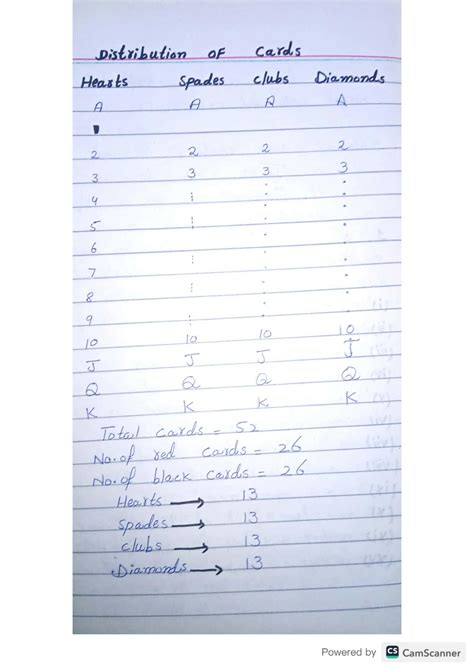 Distribution OF Cards
Hearts Spades Clubs Diamonds
A A A A
2 2 2 2
3 3 3 3
4
5
6
7
8
9
10 10 10 10
J J J J
Q Q Q Q
K K K K
Total cards = 52
No. of red cards = 26
No. of black cards = 26
Hearts → 13
Spades → 13
Clubs → 13
Diamonds → 13
Powered by CS CamScanner